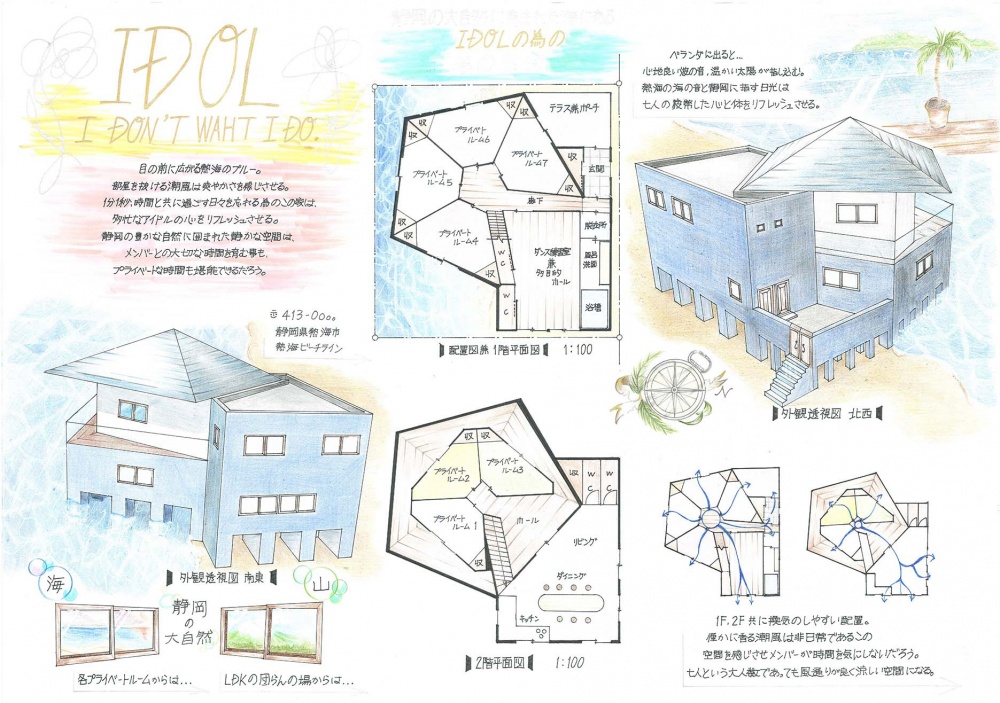 IDOL
I DON'T WAHT I DO.
目の前に広がる熱海のブルー。
部屋を抜ける潮風は爽やかさを感じさせる。
1分1秒、時間と共に過ごす日々を忘れる為のこの家は、
多忙なアイドルの心をリフレッシュさせる。
静岡の豊かな自然に囲まれた静かな空間は、
メンバーとの大切な時間を育む事も、
プライベートな時間も堪能できるだろう。
〒413-00。。
静岡県熱海市
熱海ビーチライン
外観透視図 南東
海
山
静岡
の
大自然
各プライベートルームからは...
LDKの団らんの場からは...
IDOLの為の
収
プライベート
ルーム6
テラス兼ポーチ
収
収
プライベート
ルーム7
収
玄関
プライベート
ルーム5
収
廊下
収
プライベート
ルーム4
脱衣所
ダンス練習室
兼
多目的
ホール
WC
収
WC
浴槽
配置図兼1階平面図 1:100
収
収
プライベート
ルーム2
プライベート
ルーム3
収
WC
WC
プライベート
ルーム1
ホール
収
リビング
ダイニング
キッチン
2階平面図 1:100
ベランダに出ると...
心地良い波の音、温かい太陽が差し込む。
熱海の海の音と静岡に指す日光は
七人の疲弊した心と体をリフレッシュさせる。
外観透視図 北西
N
1F,2F共に換気のしやすい配置。
僅かに香る潮風は非日常であるこの
空間を感じさせメンバーが時間を気にしないだろう。
七人という大人数であっても風通りが良く涼しい空間になる。